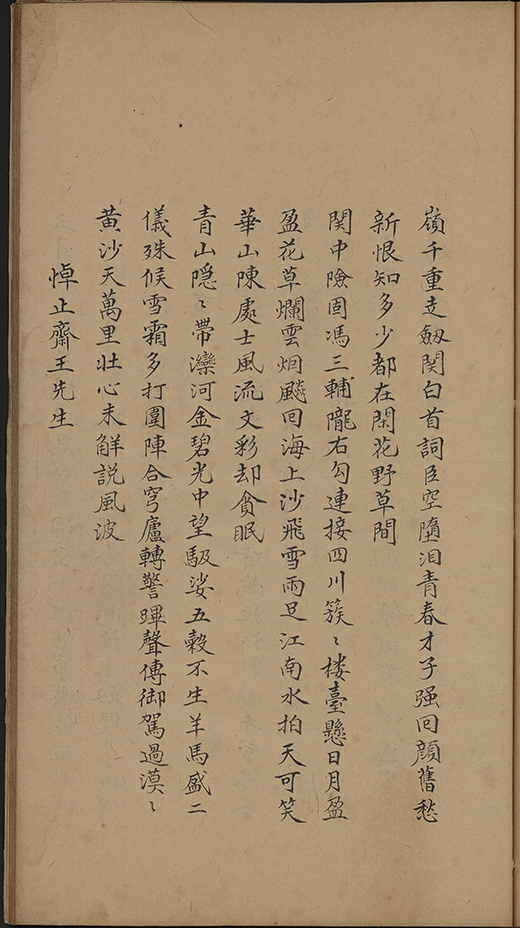 嶺千重走劔関白首詞臣空墮泪青春才子强回顔舊愁
新恨知多少都在閑花野草間
関中險固馮三輔隴右勾連接四川簇〻楼臺懸日月盈
盈花草爛雲烟飈回海上沙飛雪雨足江南水拍天可笑
華山陳處士風流文彩却貪眠
青山隐〻帶灤河金碧光中望馺娑五穀不生羊馬盛二
儀殊候雪霜多打圍陣合穹廬轉警蹕聲傳御駕過漠〻
黄沙天萬里壮心未觧説風波
悼止齋王先生